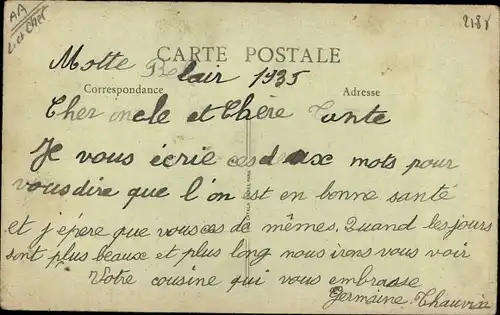 AA
L et Cher
2188
CARTE POSTALE
Motte Belair 1935
Correspondance
Adresse
Cher oncle et Chère Tante
Je vous écrie ces deux mots pour
vous dire que l'on est en bonne santé
et j'épere que vous ces de mêmes. Quand les jours
sont plus beaux et plus long nous irons vous voir
Votre cousine qui vous embrasse
Germaine Chauvin